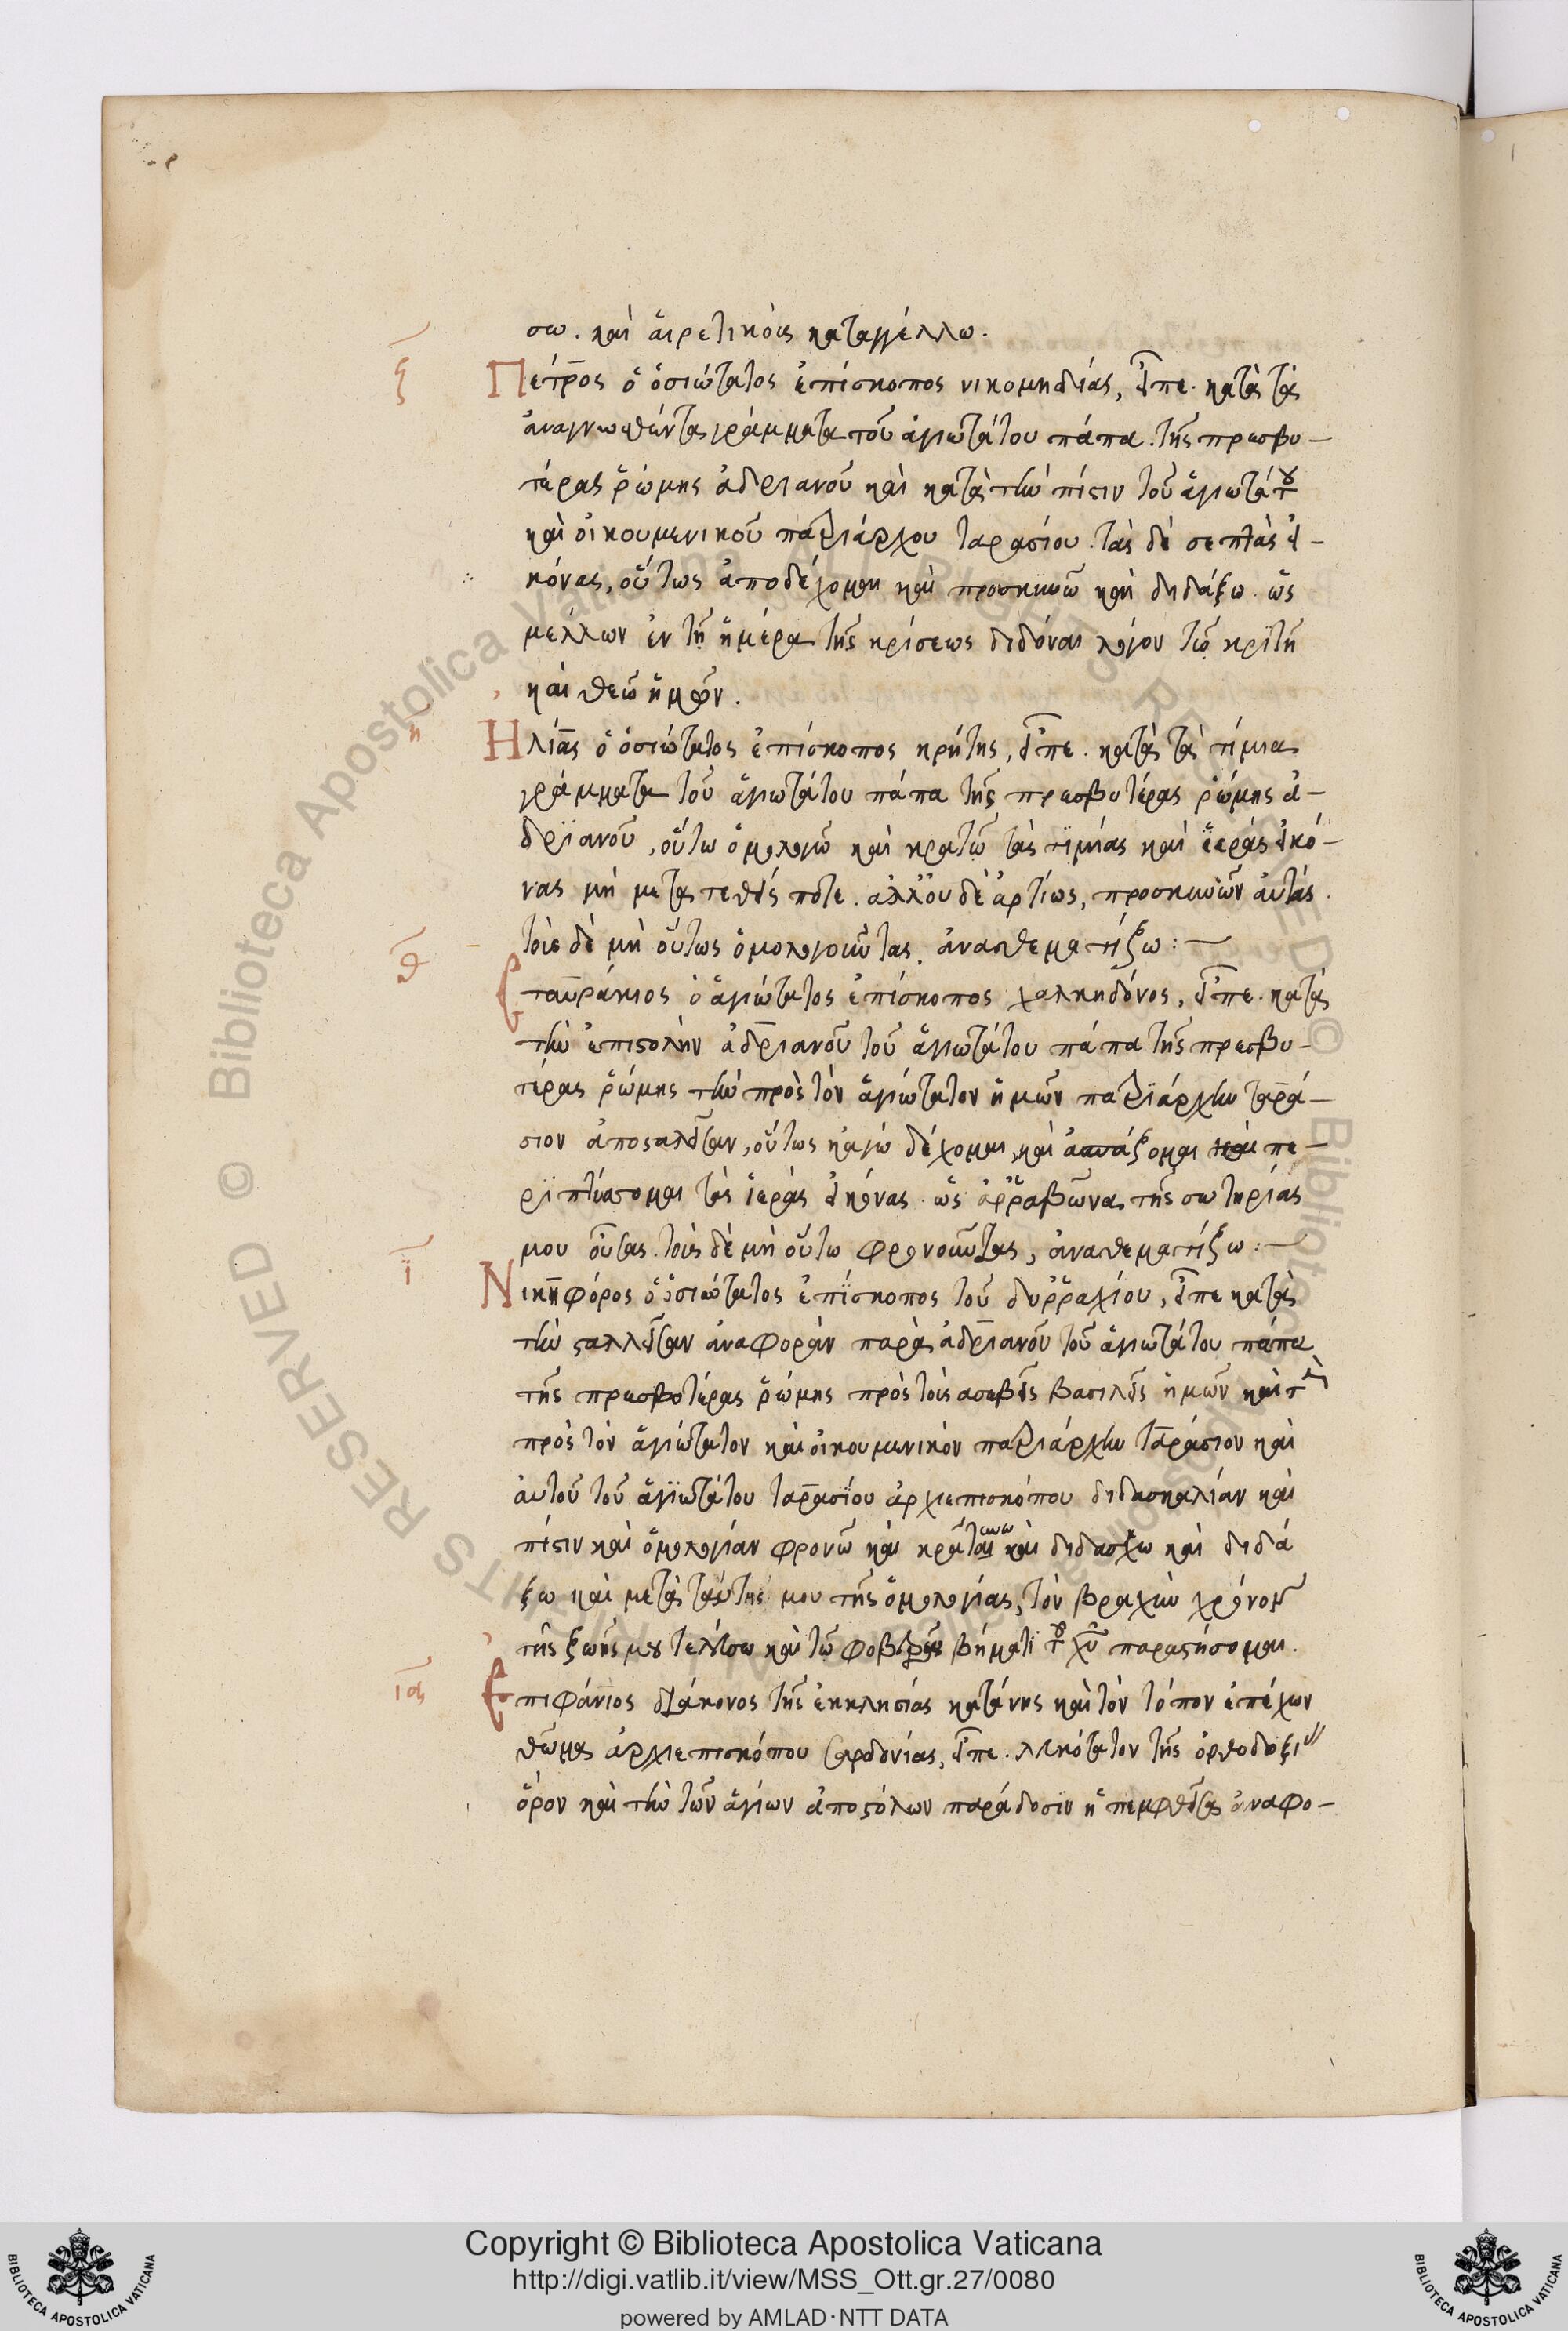 σω. καὶ ἁιρετικὸις καταγγέλλω.
ζ
Πέτρος ὁ ὁσιώτατος ἐπίσκοπος νικομηδίας, εἶπε. κατὰ τὰ
ἀναγνωσθέντα γράμματα τοῦ ἁγιωτάτου πάπα τῆς πρεσβυ-
τέρας ῥώμης ἀδριανοῦ καὶ κατὰ τὴν πίστιν τοῦ ἁγιωτάτου
καὶ ὀικουμενικοῦ πατριάρχου ταρασίου. τὰς δὲ σεπτὰς εἰ-
κόνας, οὕτως ἀποδέχομαι καὶ προσκυνῶ καὶ διδάξω. ὡς
μέλλων ἐν τῇ ἡμέρα τῆς κρίσεως διδόναι λόγον τῷ κριτῇ
καὶ θεῶ ἡμῶν.
η
Ηλίας ὁ ὁσιώτατος ἐπίσκοπος κρήτης, εἶπε. κατὰ τὰ τίμια
γράμματα τοῦ ἁγιωτάτου πάπα τῆς πρεσβυτέρας ῥώμης ἀ-
δριανοῦ, οὕτω ὁμολογῶ καὶ κρατῶ τὰς τιμίας καὶ ἱεράς εἰκό-
νας μὴ μετατεθείς ποτε. ἀλλ' οὐδὲ ἀρτίως, προσκυνῶν ἀυτάς.
τοὶς δὲ μὴ οὕτως ὁμολογοῦντας. ἀναθεματίζω:-
θ
ταυράκιος ὁ ἁγιώτατος ἐπίσκοπος χαλκηδόνος, εἶπε. κατὰ
τὴν ἐπιστολὴν ἀδριανοῦ τοῦ ἁγιωτάτου πάπα τῆς πρεσβυ-
τέρας ῥώμης τὴν πρὸς τὸν ἁγιώτατον ἡμῶν πατριάρχην ταρά-
σιον ἀποσταλεῖσαν, οὕτως κἀγὼ δέχομαι, καὶ ἀσπάζομαι καὶ πε-
ριπτύσσομαι τὰς ἱερὰς εἰκόνας. ὡς ἀρραβῶνας τῆς σωτηρίας
μου οὔσας. τοὶς δὲ μὴ οὕτω φρονοῦντας, ἀναθεματίζω:-
ι
Νικηφόρος ὁ ὁσιώτατος ἐπίσκοπος τοῦ δυρραχίου, εἶπε κατὰ
τὴν σταλλεῖσαν ἀναφορὰν παρὰ ἀδριανοῦ τοῦ ἁγιωτάτου πάπα
τῆς πρεσβυτέρας ῥώμης πρὸς τοὶς ἀσεβεῖς βασιλεῖς ἡμῶν καὶ τὴν
πρὸς τὸν ἁγιώτατον καὶ ὀικουμενικὸν πατριάρχην ταράσιον καὶ
ἀυτοῦ τοῦ ἁγιωτάτου ταρασίου ἀρχιεπισκόπου διδασκαλίαν καὶ
πίστιν καὶ ὁμολογίαν φρονῶ καὶ καὶ διδάσκω καὶ διδά
ξω καὶ μετὰ ταύτης μου τῆς ὁμολογίας, τὸν βραχὺν χρόνον
τῆς ζωῆς μου τελέσω καὶ τῶ φοβερῶ βήματι τοῦ χῦ παραστήσομαι.
ια
Επιφάνιος διάκονος τῆς ἐκκλησίας κατάνης καὶ τὸν τόπον ἐπέχων
θωμᾶ ἀρχιεπισκόπου σαρδονίας, εἶπε. λευκότατον τῆς ὀρθοδοξίας
ὅρον καὶ τὴν τῶν ἁγίων ἀποστόλων παράδοσιν ἡ πεμφθεῖσα ἀναφο-
Copyright © Biblioteca Apostolica Vaticana
http://digi.vatlib.it/view/MSS_Ott.gr.27/0080
powered by AMLAD·NTT DATA